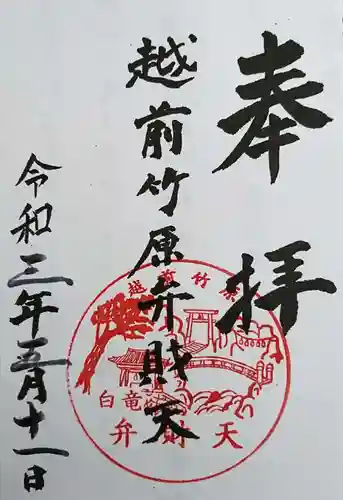 奉拝
越前竹原弁財天
令和三年五月十一日
越前竹原
白竜
弁財天